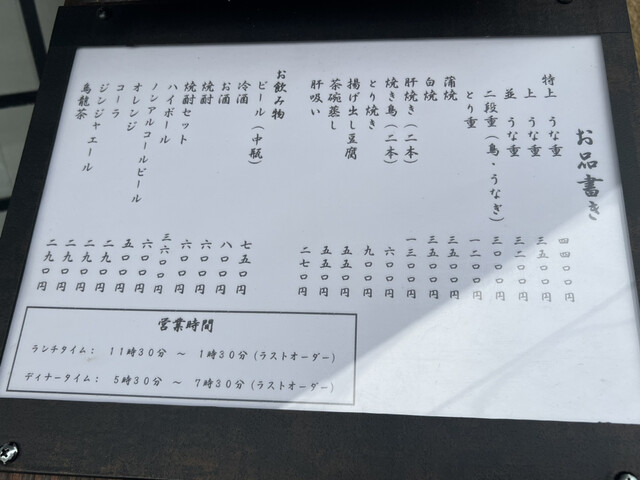 お品書き
特上 うな重 四四〇〇円
上 うな重 三五〇〇円
並 うな重 三二〇〇円
二段重(鳥・うなぎ) 三〇〇〇円
とり重 一二〇〇円
蒲焼 三五〇〇円
白焼 三五〇〇円
肝焼き(二本) 一三〇〇円
焼き鳥(二本) 六〇〇円
とり焼き 九〇〇円
揚げ出し豆腐 五五〇円
茶碗蒸し 五五〇円
肝吸い 二七〇円
お飲み物
ビール(中瓶) 七五〇円
冷酒 八〇〇円
お酒 六〇〇円
焼酎 六〇〇円
焼酎セット 三六〇〇円
ハイボール 六〇〇円
ノンアルコールビール 五〇〇円
オレンジ 二九〇円
コーラ 二九〇円
ジンジャエール 二九〇円
烏龍茶 二九〇円
営業時間
ランチタイム: 11時30分 〜 1時30分(ラストオーダー)
ディナータイム: 5時30分 〜 7時30分(ラストオーダー)